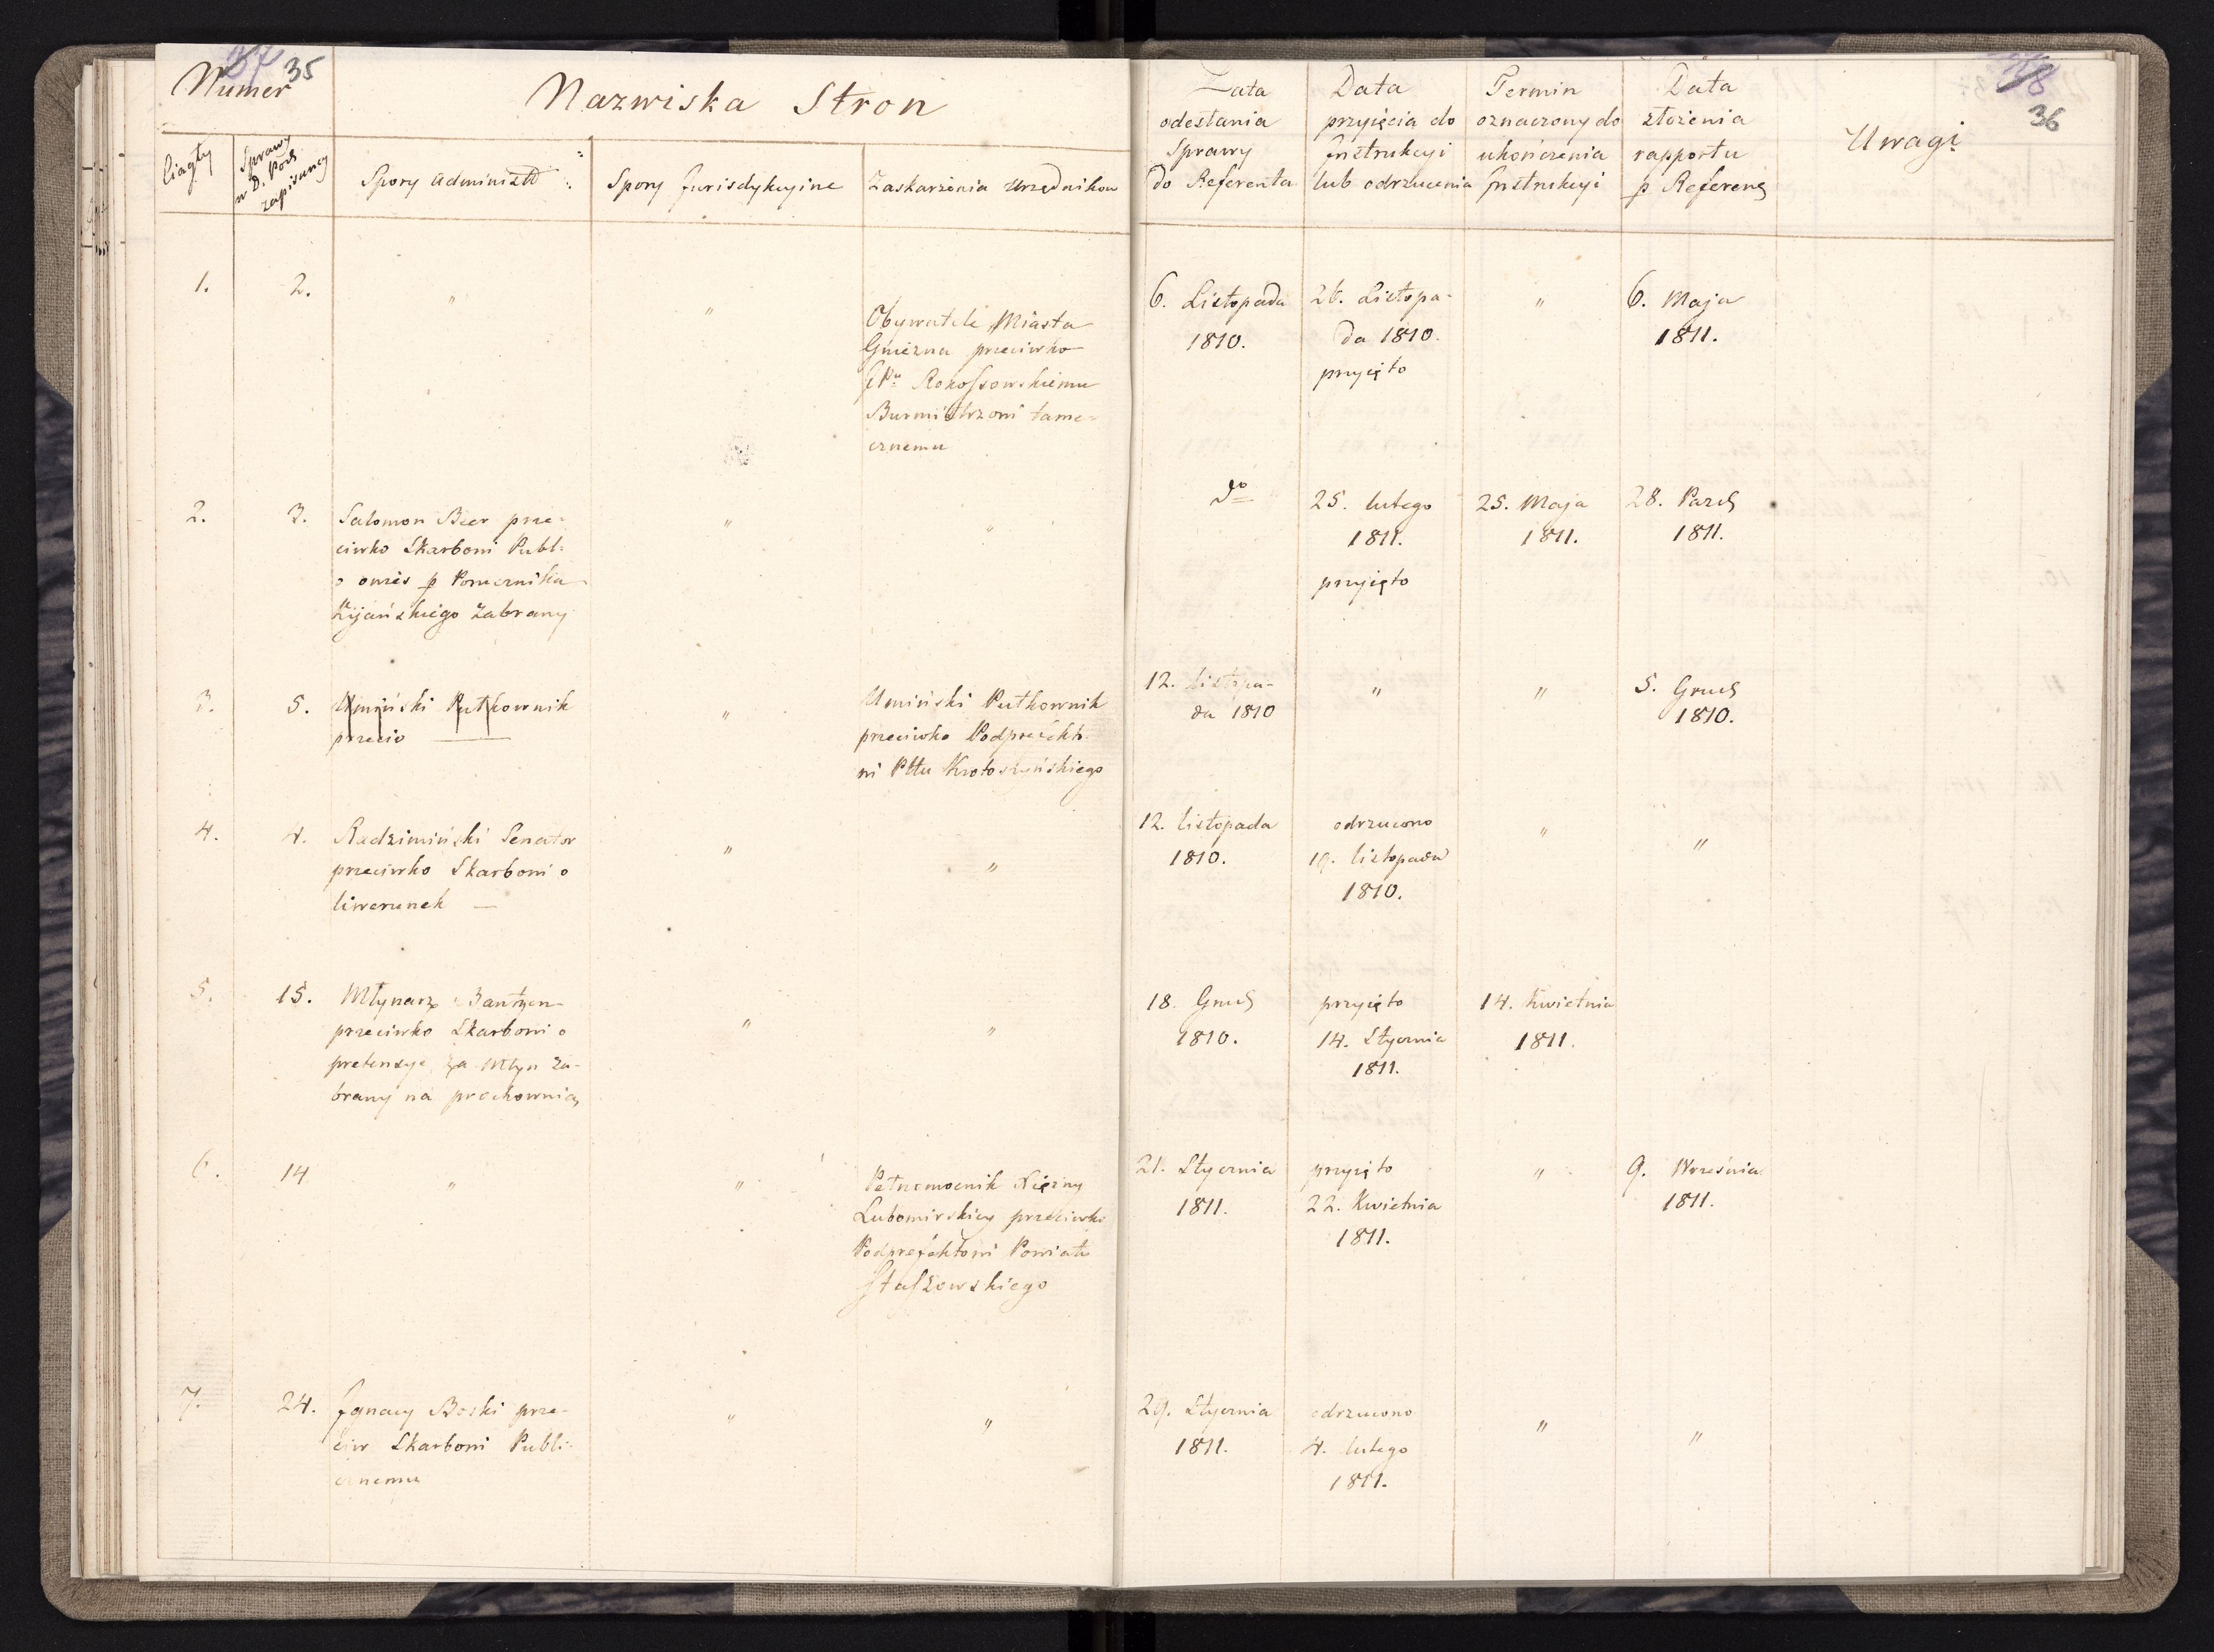 35
Numer
Nazwiska Stron
ciągły
Sprawy
w D. Pod
zapisaney
Spory Administr:
Spory Jurisdykcyine
Zaskarżenia Urzędnikow
Data
odesłania
Sprawy
do Referenta
Data
przyięcia do
Instrukcyi
lub odrzucenia
Termin
oznaczony do
ukończenia
Instrukcyi
Data
złożenia
rapportu
p Referenta
Uwagi
36
1.
2.
"
"
Obywatele Miasta
Gniezna przeciwko
Rokossowskiemu
Burmistrzowi tame-
cznemu
6. Listopada
1810.
26. Listopa-
da 1810.
przyięto
"
6. Maja
1811.
2.
3.
Salomon Beer prze-
ciwko Skarbowi Publ:
o owies p Pomocnika
Kijańskiego zabrany
"
"
do
25. lutego
1811.
przyięto
25. Maja
1811.
28. Pazd
1811.
3.
5.
Umiński Pułkownik
przeciw
"
Umiński Pułkownik
przeciwko Podprefekto-
wi Pttu Krotoszyńskiego
12. Listopa-
da 1810
"
"
5. Grud
1810.
4.
4.
Radzimiński Senator
przeciwko Skarbowi o
liwerunek —
"
"
12. listopada
1810.
odrzucono
19. listopada
1810.
"
"
5.
15.
Młynarz
przeciwko Skarbowi o
pretensye za Młyn za-
brany na prochownią
"
"
18. Grud
1810.
przyięto
14. Stycznia
1811.
14. Kwietnia
1811.
6.
14
"
"
Pełnomocnik Xiężny
Lubomirskiey przeciwko
Podprefektowi Powiatu
Staszowskiego
21. Stycznia
1811.
przyięto
22. Kwietnia
1811.
"
9. Września
1811.
7.
24.
Ignacy Boski prze-
ciw Skarbowi Publi-
cznemu
"
"
29. Stycznia
1811.
odrzucono
4. lutego
1811.
"
"